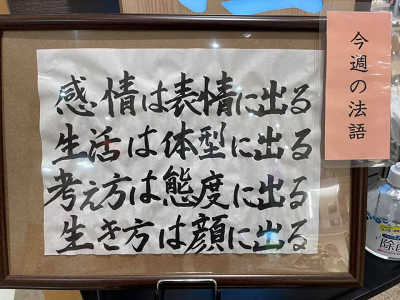 今週の法語
感情は表情に出る
生活は体型に出る
考え方は態度に出る
生き方は顔に出る
除菌